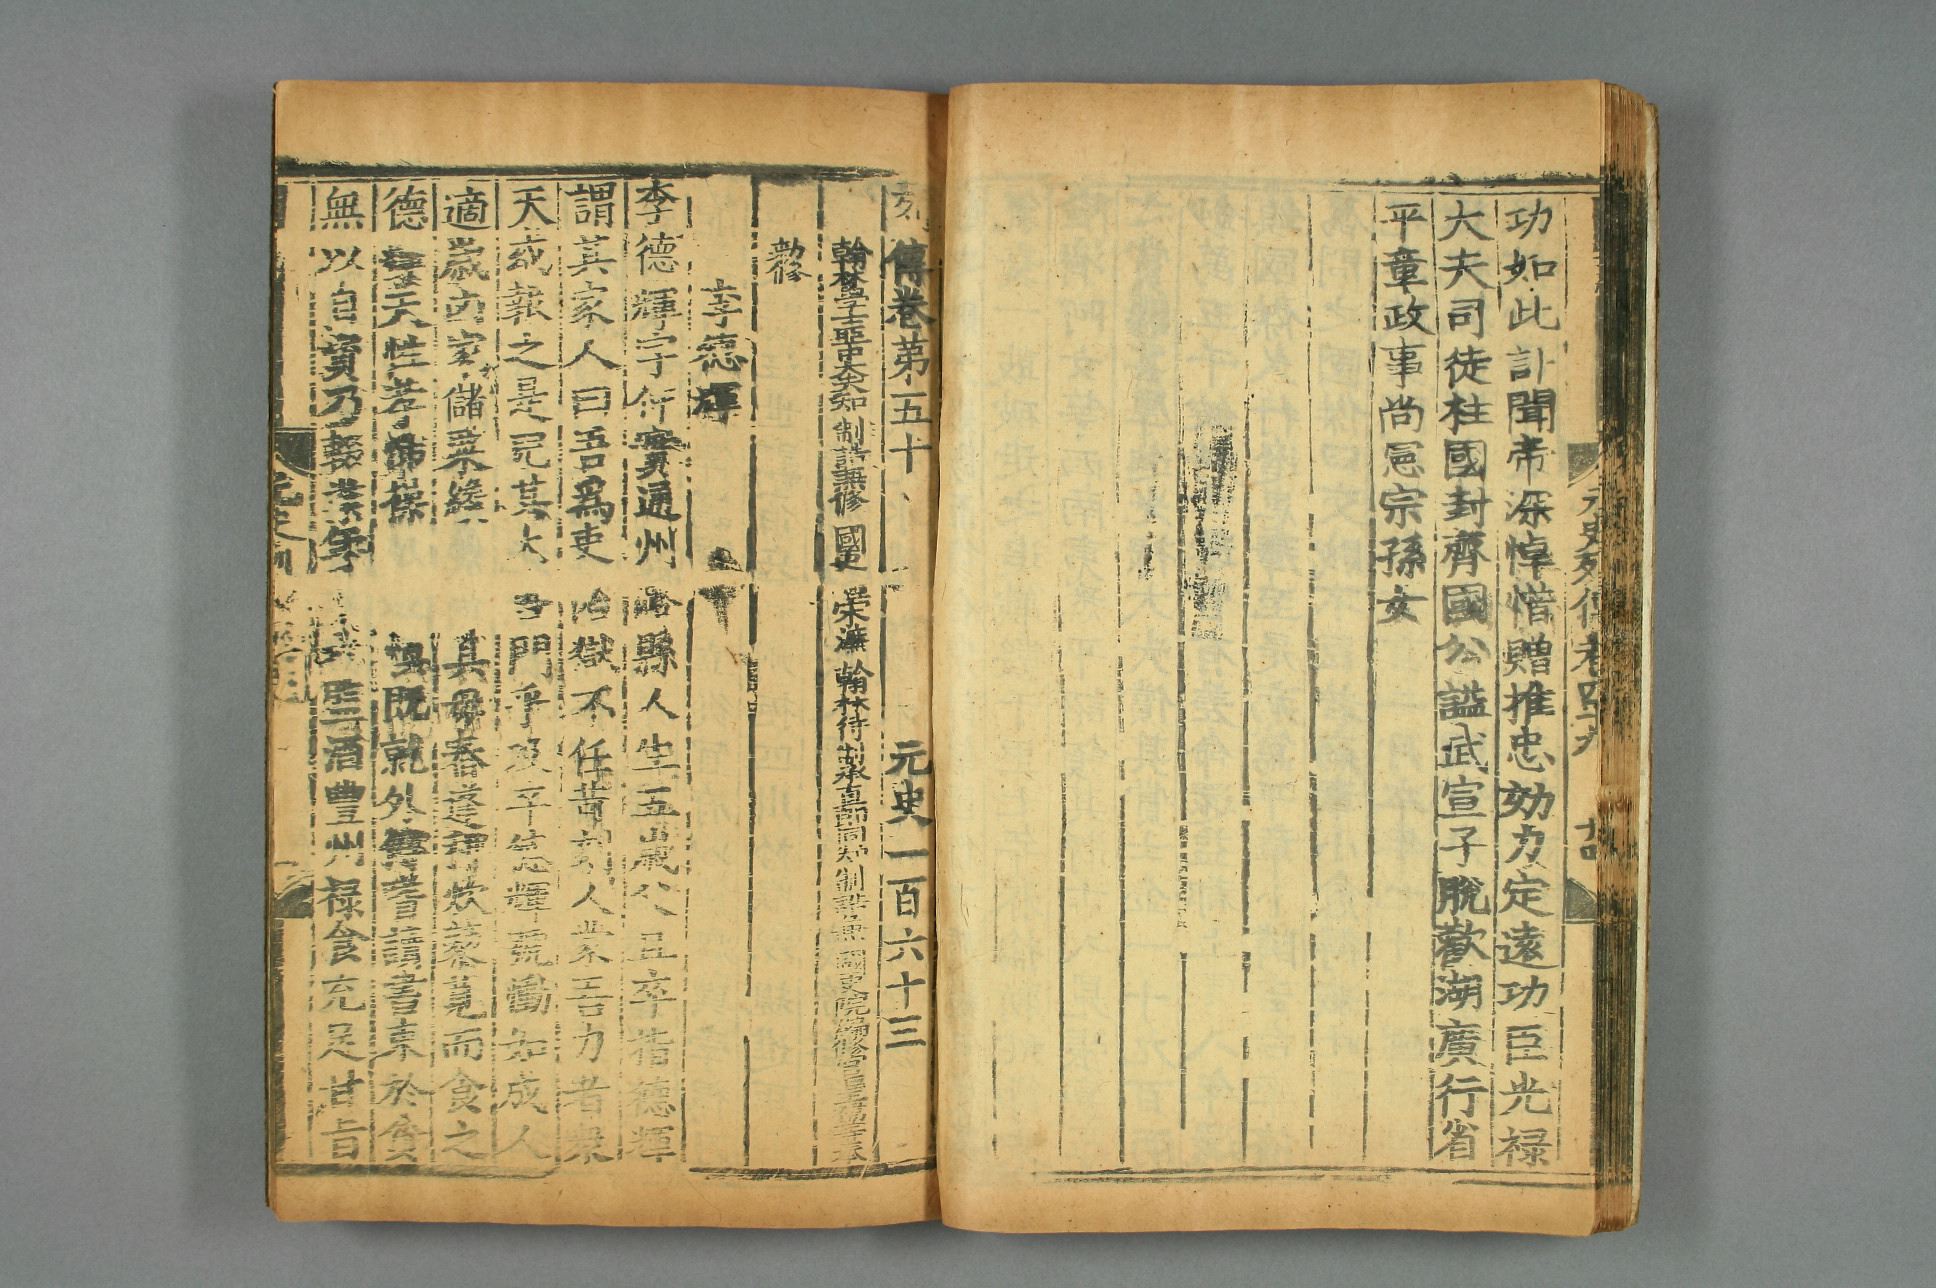 功如此計聞帝深悼惜贈推忠効力定遠功臣光禄
大夫司徒柱國封齊國公謚武宣子脫歡湖廣行省
平章政事尚憲宗孫女
元史列傳卷四十九
列傳卷第五十 元史一百六十三
翰林學士亞中大夫知 制誥兼修 國史 宋濂 翰林待制承直郎同知制誥兼 國史院編修官臣王禕等奉
勅修
李德輝
李德輝字仲實通州潞縣人生五歲父且卒指德輝
謂其家人曰吾爲吏治獄不任苛刻人蒙吾力者衆
天或報之是兒其大吾門乎及卒德輝號慟如成人
適歲凶家儲粟纔 其母舂蓬稗炊藜莧而食之
德輝天性孝悌操 既就外傅嗜讀書束於貧
無以自資乃輟業年 監酒豐州禄食充足甘旨